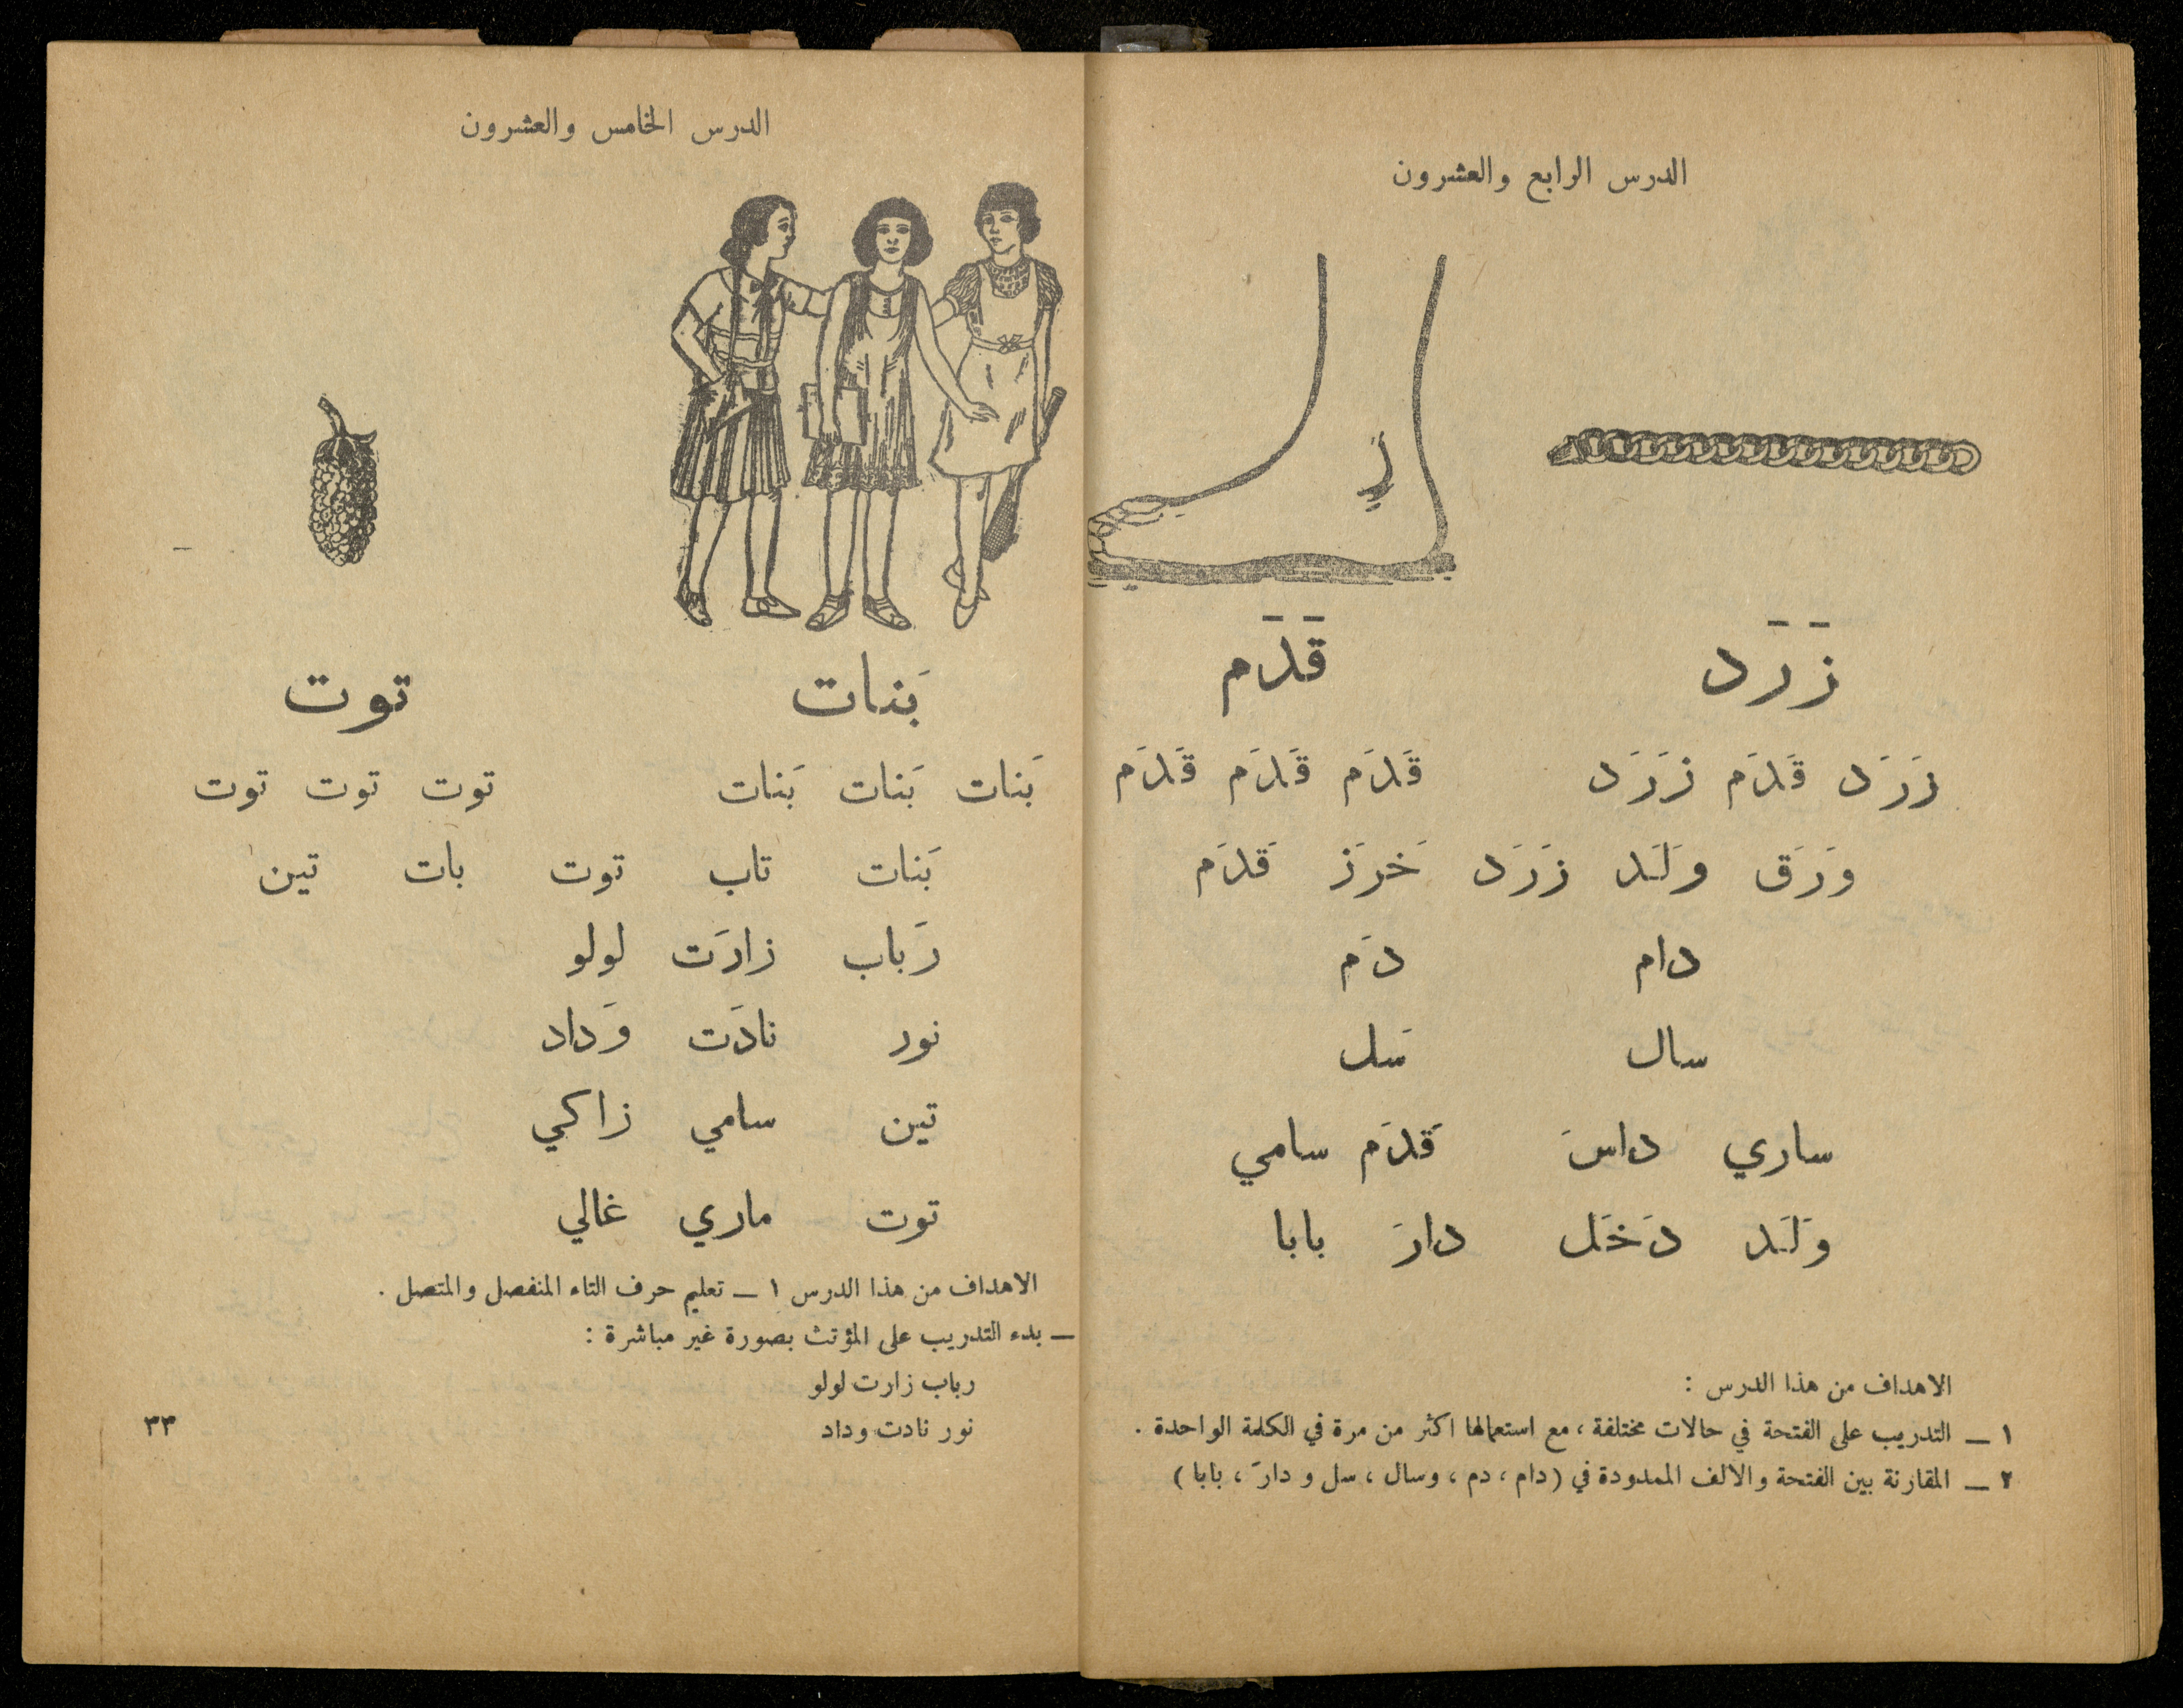 الدرس الرابع والعشرون
زَرَد قَدَم
زَرَد قَدَم زَرَد قَدَم قَدَم قَدَم
وَرَق وَلَد زَرَد خَرَز قَدَم
دام دَم
سال سَل
ساري داسَ قَدَم سامي
وَلَد دَخَل دارَ بابا
الاهداف من هذا الدرس :
١ — التدريب على الفتحة في حالات مختلفة ، مع استعمالها اكثر من مرة في الكلمة الواحدة .
٢ — المقارنة بين الفتحة والالف الممدودة في (دام ، دم ، وسال ، سل و دارَ ، بابا )
الدرس الخامس والعشرون
بَنات توت
بَنات بَنات بَنات توت توت توت
بَنات تاب توت بات تين
رَباب زارَت لولو
نور نادَت وَداد
تين سامي زاكي
توت ماري غالي
الاهداف من هذا الدرس ١ — تعليم حرف التاء المنفصل والمتصل .
— بدء التدريب على المؤنث بصورة غير مباشرة :
رباب زارت لولو
نور نادت وداد
٣٣